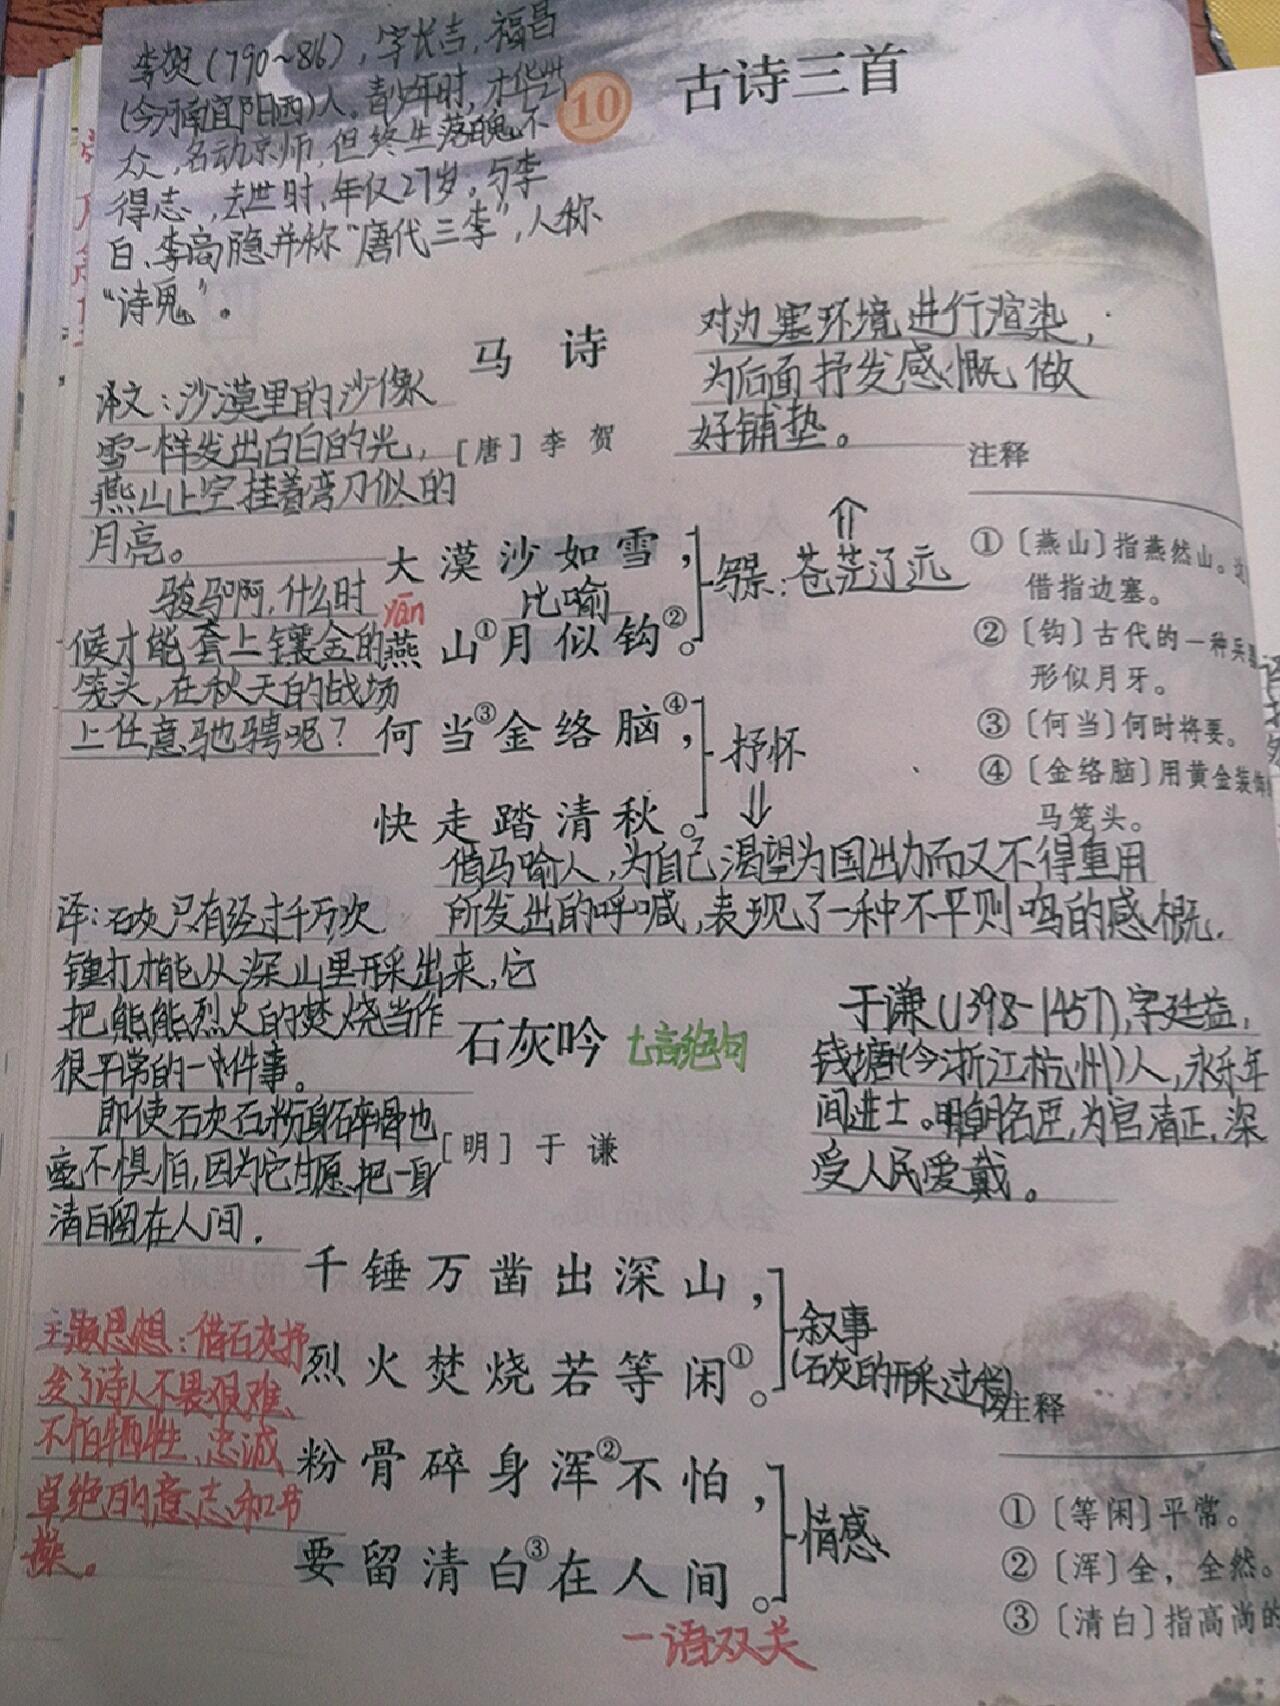 李贺(790~816),字长吉,福昌
(今河南宜阳西)人。青少年时,才华出
众,名动京师,但终生落魄不
得志,去世时,年仅27岁。与李
白、李商隐并称"唐代三李",人称
"诗鬼"。
10
古诗三首
马诗
[唐] 李贺
对边塞环境进行渲染,
为后面抒发感慨做
好铺垫。
译文:沙漠里的沙像
雪一样发出白白的光,
燕山上空挂着弯刀似的
月亮。
骏马啊,什么时
候才能套上镶金的
笼头,在秋天的战场
上任意驰骋呢?
大漠沙如雪,
比喻
yān
燕山①月似钩②。
写景:苍茫辽远
何当③金络脑④,
快走踏清秋。
抒怀
借马喻人,为自己渴望为国出力而又不得重用
所发出的呼喊,表现了一种不平则鸣的感概.
注释
①〔燕山〕指燕然山。
借指边塞。
②〔钩〕古代的一种兵器
形似月牙。
③〔何当〕何时将要。
④〔金络脑〕用黄金装饰
马笼头。
译:石灰只有经过千万次
锤打才能从深山里开采出来,它
把熊熊烈火的焚烧当作
很平常的一件事。
即使石灰石粉身碎骨也
毫不惧怕,因为它甘愿把一身
清白留在人间.
石灰吟
七言绝句
[明] 于谦
于谦(1398-1457),字廷益,
钱塘(今浙江杭州)人,永乐年
间进士。明朝名臣,为官清正,深
受人民爱戴。
千锤万凿出深山,
烈火焚烧若等闲①。
叙事
(石灰的开采过程)
粉骨碎身浑②不怕,
要留清白③在人间。
情感
一语双关
主题思想:借石灰抒
发了诗人不畏艰难、
不怕牺牲、忠诚
卓绝的意志和节
操。
注释
①〔等闲〕平常。
②〔浑〕全,全然。
③〔清白〕指高尚的